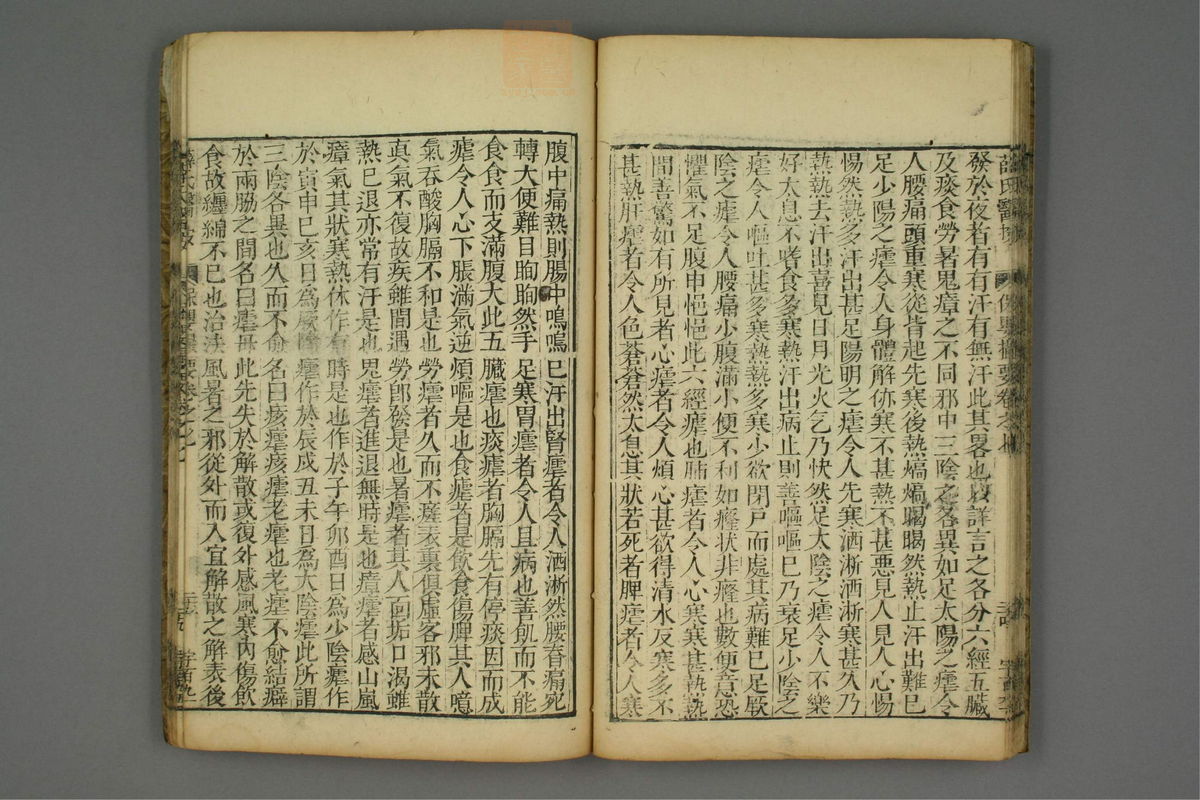 薛氏醫按 保嬰撮要卷之七
發於夜者有有汗有無汗此其畧也以詳言之各分六經五臟
及痰食勞暑鬼瘴之不同邪中三陰之各異如足太陽之瘧令
人腰痛頭重寒從背起先寒後熱熇熇暍暍然熱止汗出難已
足少陽之瘧令人身體解㑊寒不甚熱不甚惡見人見人心惕
惕然熱多汗出甚足陽明之瘧令人先寒洒淅洒淅寒甚久乃
熱熱去汗出喜見日月光火氣乃快然足太陰之瘧令人不樂
好太息不嗜食多寒熱汗出病止則善嘔嘔已乃衰足少陰之
瘧令人嘔吐甚多寒熱熱多寒少欲閉戶而處其病難已足厥
陰之瘧令人腰痛少腹滿小便不利如癃狀非癃也數便意恐
懼氣不足腹中悒悒此六經瘧也肺瘧者令人心寒寒甚熱熱
間善驚如有所見者心瘧者令人煩心甚欲得清水反寒多不
甚熱肝瘧者令人色蒼蒼然太息其狀若死者脾瘧者令人寒
腹中痛熱則腸中鳴鳴已汗出腎瘧者令人洒淅然腰脊痛宛
轉大便難目眴眴然手足寒胃瘧者令人且病也善飢而不能
食食而支滿腹大此五臟瘧也痰瘧者胸膈先有停痰因而成
瘧令人心下脹滿氣逆煩嘔是也食瘧者是飲食傷脾其人噫
氣吞酸胸膈不和是也勞瘧者久而不瘥表裏俱虛客邪未散
真氣不復故疾雖間遇勞即發是也暑瘧者其人面垢口渴雖
熱已退亦常有汗是也鬼瘧者進退無時是也瘴瘧者感山嵐
瘴氣其狀寒熱休作有時是也作於子午卯酉日為少陰瘧作
於寅申巳亥日為厥陰瘧作於辰戌丑未日為太陰瘧此所謂
三陰各異也久而不愈名曰痎瘧痎瘧老瘧也老瘧不愈結癖
於兩脇之間名曰瘧母此先失於解散或復外感風寒內傷飲
食故纏綿不已也治法風暑之邪從外而入宜解散之解表後